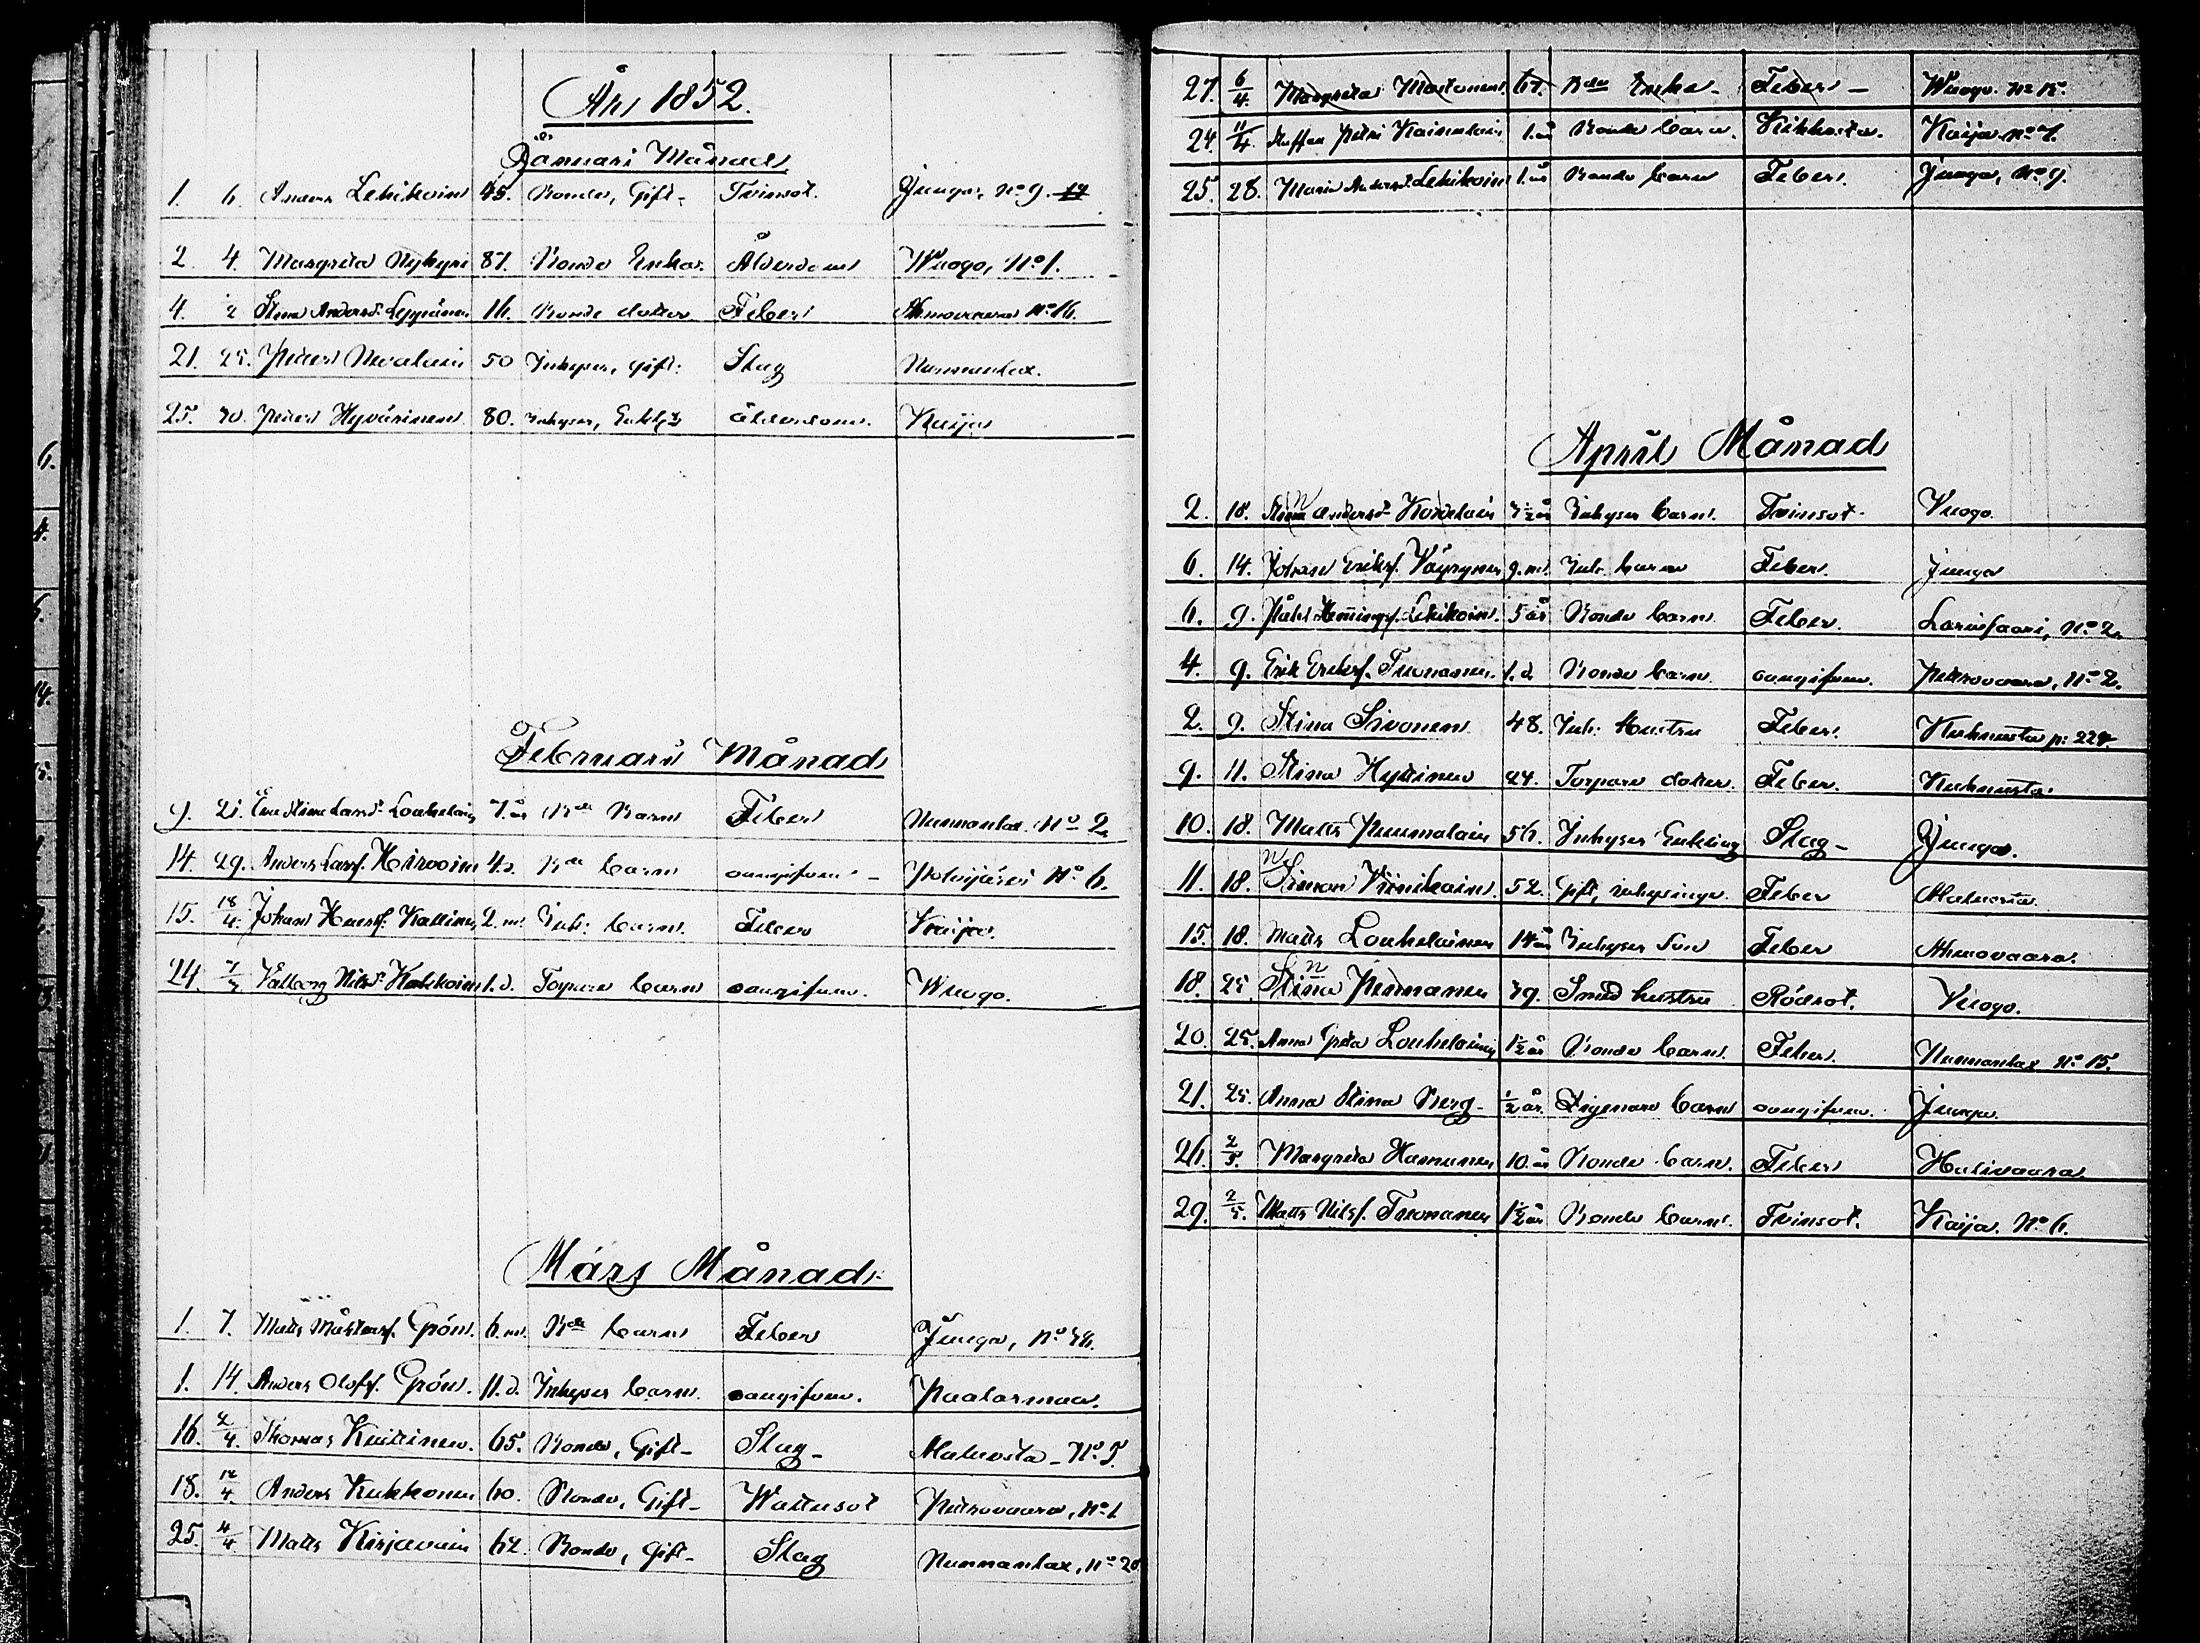 År 1852.
Januari Månad
1. 6. Anders Lehikoin 45. Bonde, Gift- Tvinsot. Juuga, No 9.
2 4. Margreta Nykyri 87. Bonde Enka. Ålderdom Wuogo, No 1.
4. 2 Stina Andersd. Leppänen 16. Bonde dotter Feber Ahmovaara No 16.
21. 25. Petter Nevalain 50 Inhyses, gift: Slag Nunnanlax.
25. 30. Petter Hyvärinen 80. Inhyses, Enkl. ålderdom. Kaija
Februari Månad
9. 21. Eva Stina Larsd. Louhelain 7. år Bde Barn Feber Nunnanlax. No 2.
14. 29. Anders Larsf. Hirvoin 4. d. Bde barn oangifven - Polvijärvi No 6.
15. 18/4. Johan Kallinen 2. m. Inh. barn. Feber Kaija.
24. 7/3 Valborg Nilsd. Kahkoin 1. d. Torpare barn oangifven. Wuogo.
Mars Månad
1. 7. Matts Grön. 6. m. Bde barn Feber Juuga, No 36.
1. 14. Anders Olofsf. Grön. 11. d. Inhyses barn. oangifven. Paalasmaa.
16. 2/4. Thomas Kuittinen. 65. Bonde, Gift- Slag- Alaluosta - No 5.
18. 12/4. Anders Kukkonen 60. Bonde, Gift- Wattusot Petrovaara, No 1
25. 4/4 Matts Kirjavain 62. Bonde, Gift- Slag Nunnanlax, No 20
27. 6/4. Margreta Martonen. 67. Bde Enka- Feber - Wuogo No 15.
24. 11/4. Staffan Petri Kainulain 1. år Bonde barn. Kikhosta. Kaija No 7.
25. 28. Maria Andersd. Lehikoin 1. år Bonde barn Feber. Juuga, No 9.
April Månad
2. 18. Stina Andersd. Korhelain 3 1/2 år Inhyses barn. Tvinsot. Vuogo
6. 14. Johan Eriksf. Väyrynen 9. m. Inh. barn Feber. Juuga
6. 9. Påhl Henningsf. Lehikoin. 5 år Bonde barn. Feber. Larinsaari, No 2.
4. 9. Erik Eriksf. Tuononen. 1. d. Bonde barn. oangifven. Petrovaara, No 2.
2. 9. Stina Sivonen 48. Inh. Hustru Feber. Kuhnusta p. 224.
9. 11. Stina Hyttinen 24. Torpare dotter. Feber. Kuhnusta
10. 18. Matts Puumalain 56. Inhyses Enkling Slag- Juuga.
11. 18. Simon Viinikain. 52. Gift, inhysinge. Feber Alaluosta
15. 18. Matts Louhelainen 14 år Inhyses Son Feber Ahmovaara.
18. 25. Stina Pesonanen 39. Smed hustru Rödsot. Vuogo.
20. 25. Anna Greta Louhelainen 1 1/2 år Bonde barn. Feber. Nunnanlax No 15.
21. 25. Anna Stina Berg- 1/2 år. Zigenare barn oangifven. Juuga.
26. 2/5. Margreta Hamunen 10. år Bonde barn. Feber Halivaara
29. 2/5. Matts Nilsf. Tuononen 1 1/2 år Bonde barn. Tvinsot. Kaija. No 6.